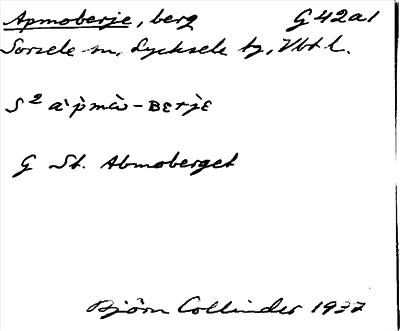 Apmoberje, berg G 42a1
Sorsele sn, Lycksele tg, Vbt l.
S² àpmà-BERJE
G St. Abmoberget
Björn Collinder 1937